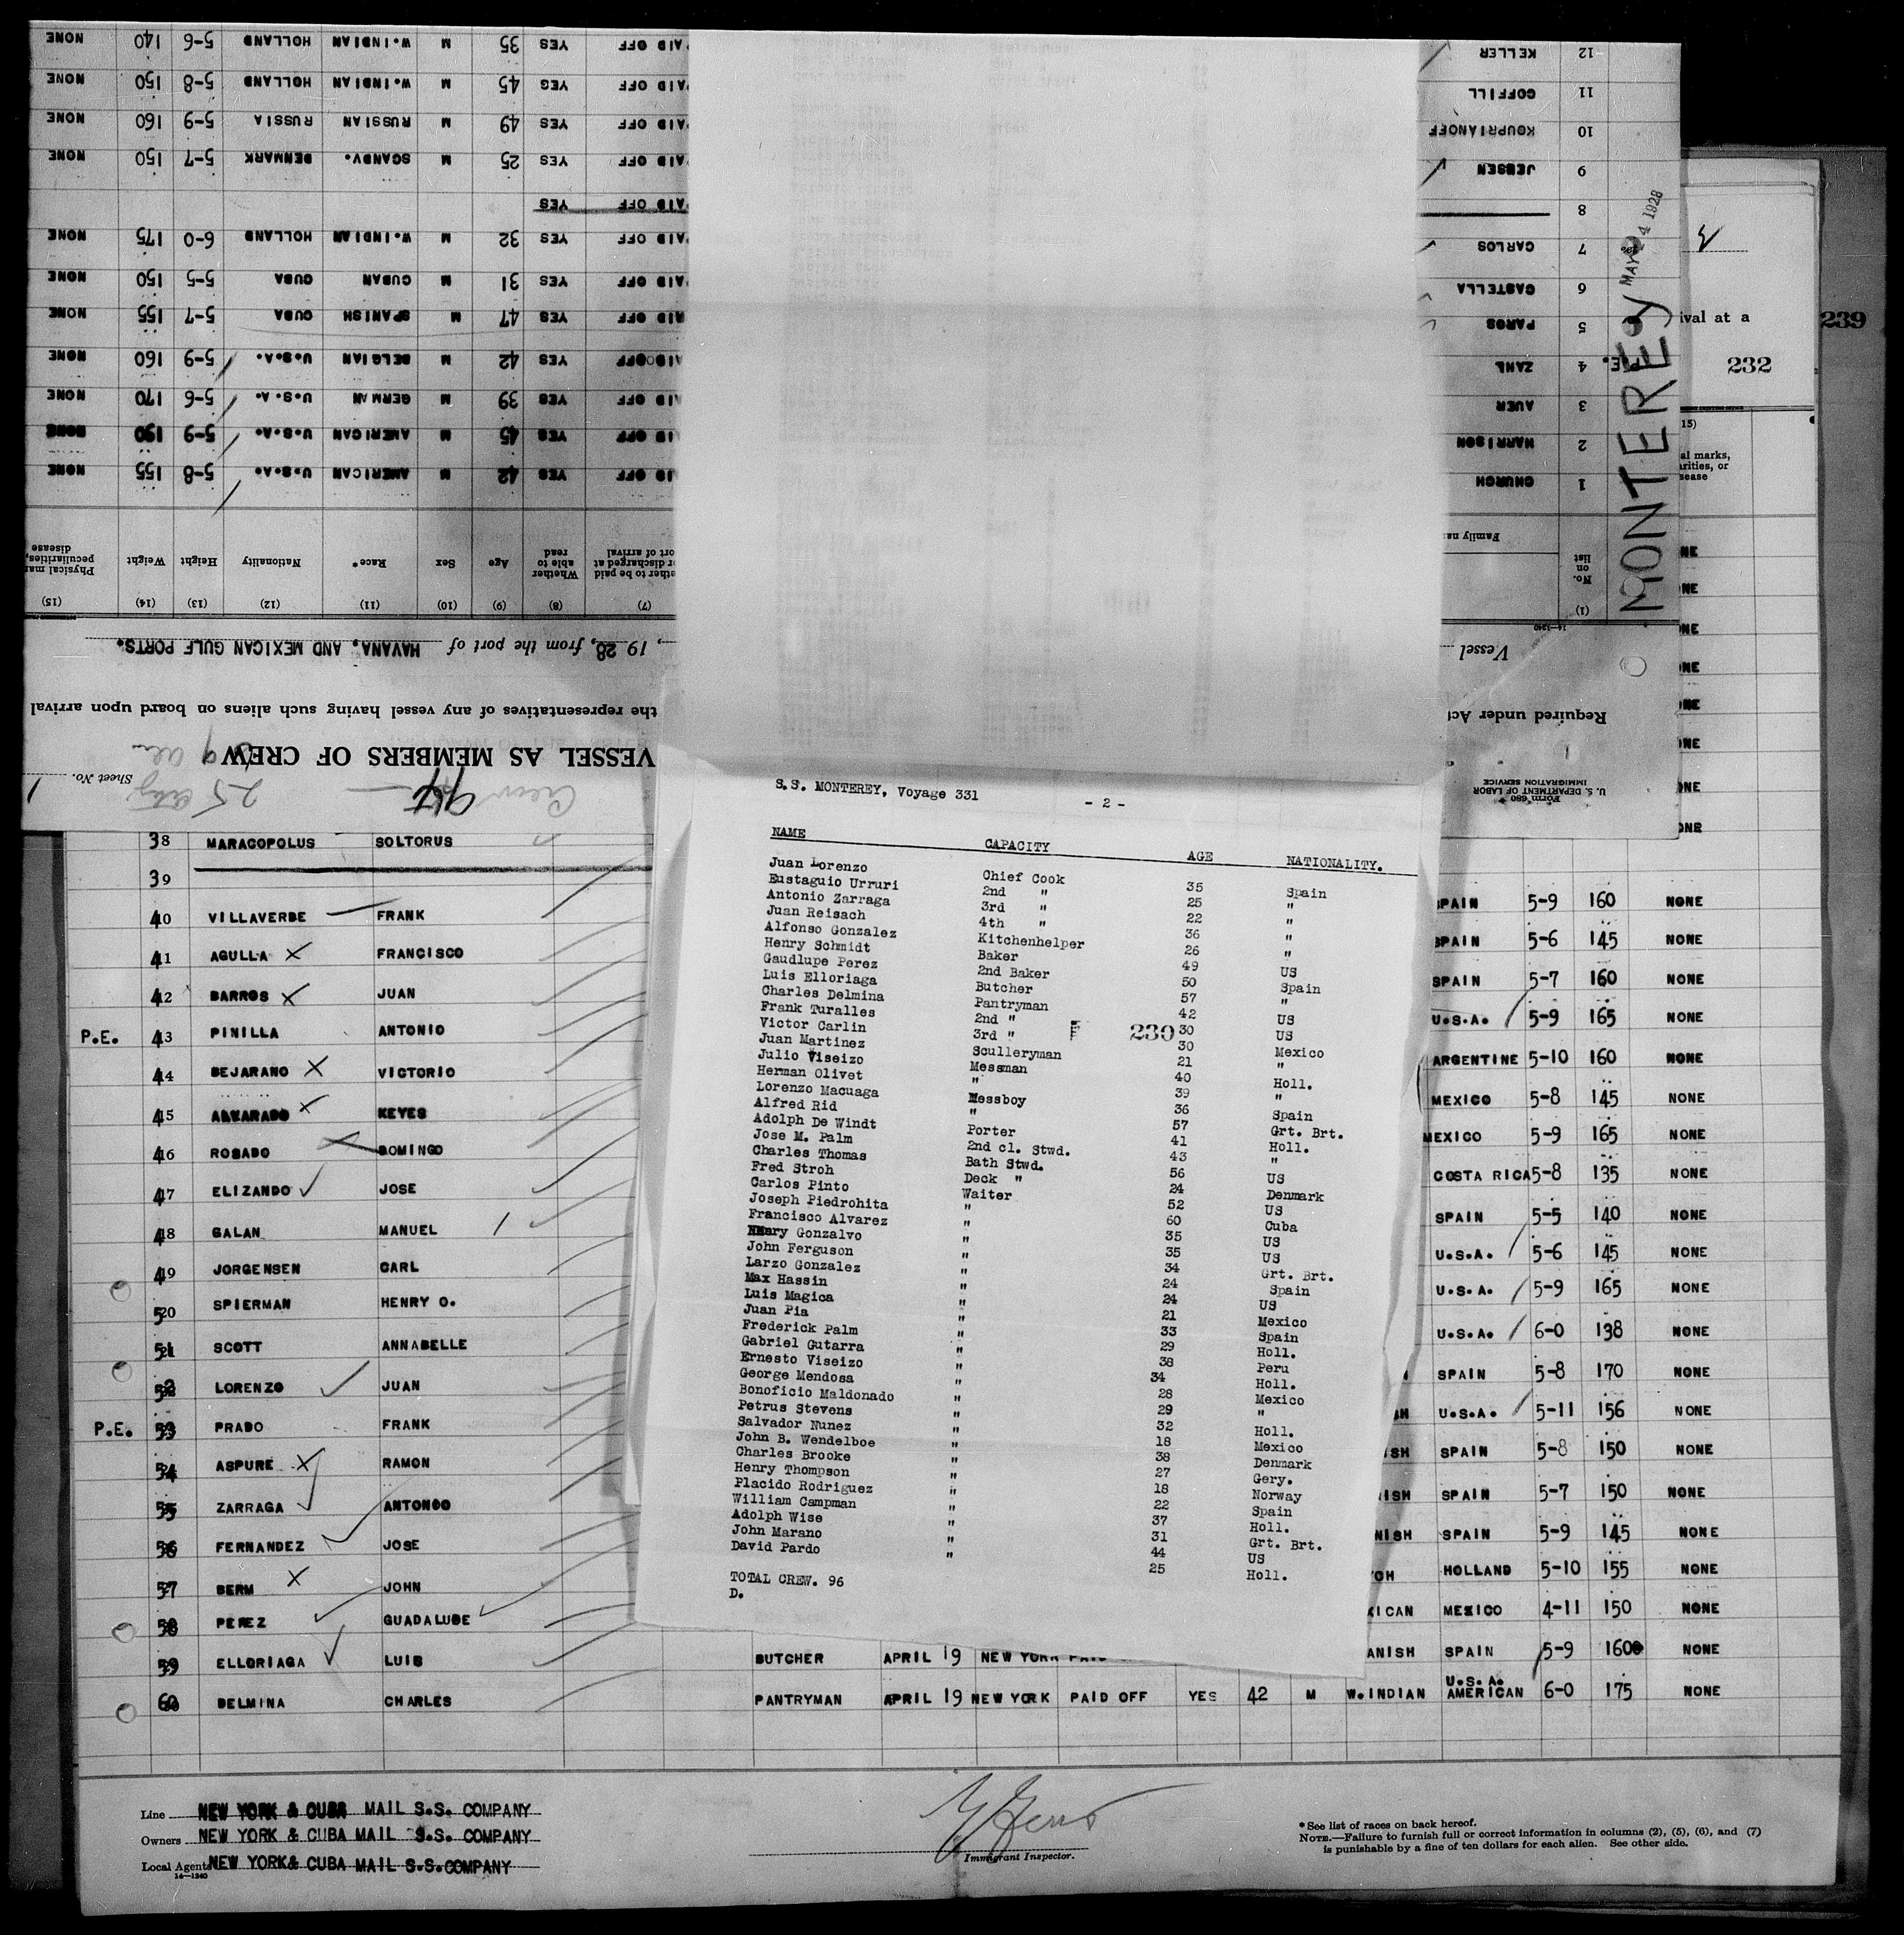 12 KELLER PAID OFF YES 35 M W.INDIAN HOLLAND 5-6 140 NONE
11 COFFILL PAID OFF YES 45 M W.INDIAN HOLLAND 5-8 150 NONE
10 KOUPRIANOFF PAID OFF YES 49 M RUSSIAN RUSSIA 5-9 160 NONE
9 JEBSEN PAID OFF YES 25 M SCANDV. DENMARK 5-7 150 NONE
8 PAID OFF YES
7 CARLOS PAID OFF YES 32 M W.INDIAN HOLLAND 6-0 175 NONE
6 CASTELLA PAID OFF YES 31 M CUBAN CUBA 5-5 150 NONE
5 PAROS PAID OFF YES 47 M SPANISH CUBA 5-7 155 NONE
P.E. 4 ZAHL PAID OFF YES 42 M BELGIAN U.S.A. 5-9 160 NONE
3 AUER PAID OFF YES 39 M GERMAN U.S.A. 5-6 170 NONE
2 HARRISON PAID OFF YES 45 M AMERICAN U.S.A. 5-9 190 NONE
1 CHURCH PAID OFF YES 42 M AMERICAN U.S.A. 5-8 155 NONE
MONTEREY MAY 24 1928
(1) (7) (8) (9) (10) (11) (12) (13) (14) (15)
No. on list Family na
ether to be paid or discharged at ort of arrival Whether able to read Age Sex Race* Nationality Height Weight Physical mar peculiarities, disease
Vessel , 19 28, from the port of HAVANA, AND MEXICAN GULF PORTS.
Required under Ac the representatives of any vessel having such aliens on board upon arrival
VESSEL AS MEMBERS OF CREW
Form 680
U. S. DEPARTMENT OF LABOR
IMMIGRATION SERVICE
Sheet No. 1
14-1240
3
ival at a
232
239
15)
al marks,
rities, or
sease
S.S. MONTEREY, Voyage 331
- 2 -
NAME CAPACITY AGE NATIONALITY.
Juan Lorenzo Chief Cook 35 Spain
Eustaguio Urruri 2nd " 25 "
Antonio Zarraga 3rd " 22 "
Juan Reisach 4th " 36 "
Alfonso Gonzalez Kitchenhelper 26 "
Henry Schmidt Baker 49 US
Gaudlupe Perez 2nd Baker 50 Spain
Luis Elloriaga Butcher 57 "
Charles Delmina Pantryman 42 US
Frank Turalles 2nd " 30 US
Victor Carlin 3rd " 30 Mexico
230
Juan Martinez Sculleryman 21 "
Julio Viseizo Messman 40 Holl.
Herman Olivet " 39 "
Lorenzo Macuaga Messboy 36 Spain
Alfred Rid " 57 Grt. Brt.
Adolph De Windt Porter 41 Holl.
Jose M. Palm 2nd cl. Stwd. 43 "
Charles Thomas Bath Stwd. 56 US
Fred Stroh Deck " 24 Denmark
Carlos Pinto Waiter 52 US
Joseph Piedrohita " 60 Cuba
Francisco Alvarez " 35 US
Henry Gonzalvo " 35 US
John Ferguson " 34 Grt. Brt.
Larzo Gonzalez " 24 Spain
Max Hassin " 24 US
Luis Magica " 21 Mexico
Juan Pia " 33 Spain
Frederick Palm " 29 Holl.
Gabriel Gutarra " 38 Peru
Ernesto Viseizo " 34 Holl.
George Mendosa " 28 Mexico
Bonoficio Maldonado " 29 "
Petrus Stevens " 32 Holl.
Salvador Nunez " 18 Mexico
John B. Wendelboe " 38 Denmark
Charles Brooke " 27 Gery.
Henry Thompson " 18 Norway
Placido Rodriguez " 22 Spain
William Campman " 37 Holl.
Adolph Wise " 31 Grt. Brt.
John Marano " 44 US
David Pardo " 25 Holl.
TOTAL CREW. 96
D.
38 MARACOPOLUS SOLTORUS
39
40 VILLAVERDE FRANK SPAIN 5-9 160 NONE
41 AGULLA FRANCISCO SPAIN 5-6 145 NONE
42 BARROS JUAN SPAIN 5-7 160 NONE
P.E. 43 PINILLA ANTONIO U.S.A. 5-9 165 NONE
44 BEJARANO VICTORIO ARGENTINE 5-10 160 NONE
45 ALVARADO KEYES MEXICO 5-8 145 NONE
46 ROSADO DOMINGO MEXICO 5-9 165 NONE
47 ELIZANDO JOSE COSTA RICA 5-8 135 NONE
48 GALAN MANUEL SPAIN 5-5 140 NONE
49 JORGENSEN CARL U.S.A. 5-6 145 NONE
50 SPIERMAN HENRY O. U.S.A. 5-9 165 NONE
51 SCOTT ANNABELLE U.S.A. 6-0 138 NONE
52 LORENZO JUAN SPAIN 5-8 170 NONE
P.E. 53 PRADO FRANK U.S.A. 5-11 156 NONE
54 ASPURE RAMON SH SPAIN 5-8 150 NONE
55 ZARRAGA ANTONGO ISH SPAIN 5-7 150 NONE
56 FERNANDEZ JOSE NISH SPAIN 5-9 145 NONE
57 BERM JOHN CH HOLLAND 5-10 155 NONE
58 PEREZ GUADALUDE XICAN MEXICO 4-11 150 NONE
59 ELLORIAGA LUIS BUTCHER APRIL 19 NEW YORK PAID ANISH SPAIN 5-9 160 NONE
60 DELMINA CHARLES PANTRYMAN APRIL 19 NEW YORK PAID OFF YES 42 M W.INDIAN U.S.A. AMERICAN 6-0 175 NONE
Line NEW YORK & CUBA MAIL S.S. COMPANY
Owners NEW YORK & CUBA MAIL S.S. COMPANY
Local Agents NEW YORK& CUBA MAIL S.S.COMPANY
14-1240
Immigrant Inspector.
* See list of races on back hereof.
NOTE.—Failure to furnish full or correct information in columns (2), (5), (6), and (7)
is punishable by a fine of ten dollars for each alien. See other side.